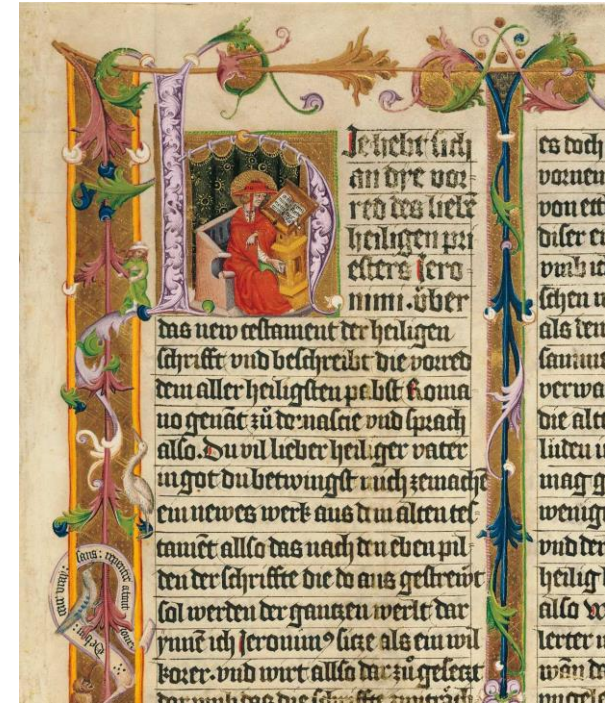 HJe hebt sich
an dye vor=
red des liebē
heiligen pri
esters Jero
nimi. über
das new testament der heiligen
schrifft vnd beschreibt die vorred
dem aller heiligsten pabst Roma
no genāt zů dernascie vnd sprach
also. Du vil lieber heiliger vater
in got du betwingst mich zemachē
ein newes werk aus dem alten tes
tamēt allso das nach den eben pil
den der schriffte die do aus gestrewt
sol werden der gantzen werlt dar
ynnē ich Jeronimꝰ sitze als ein wil
korer. vnd wirt allso dar zů gesetzt
dar vmb das die schriffte zwiträch
sans: repentir
es doch
vornem
von ett
diser er
vmb ich
schen n
als den
samme
verwa
die alte
lüden i
mag g
wenig
vnd der
heilig
also
lerter
wan